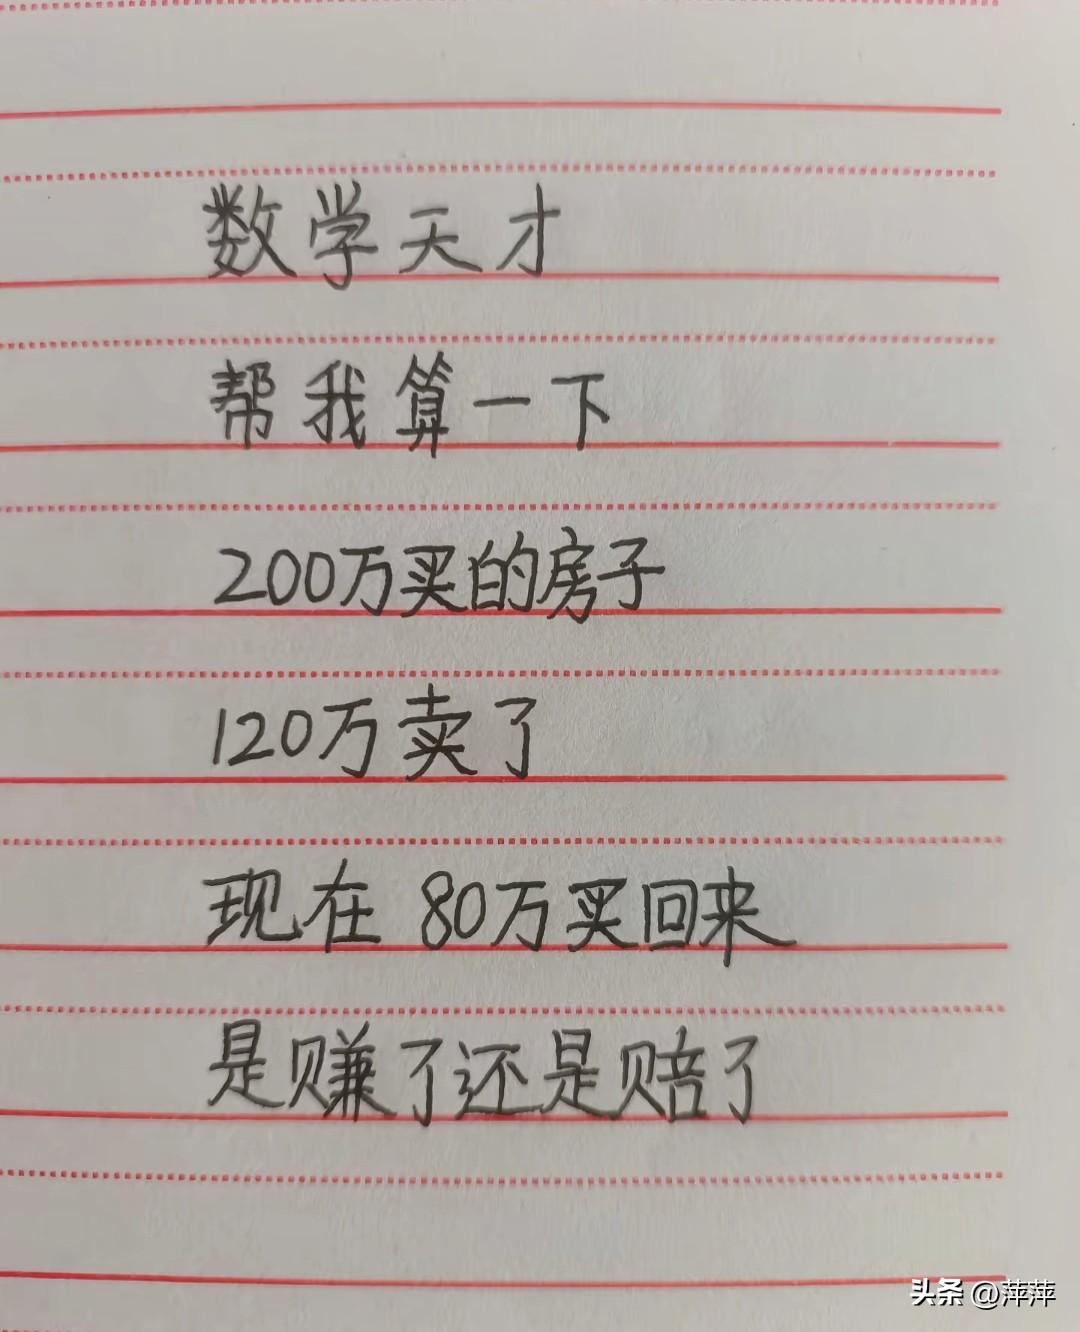 数学天才
帮我算一下
200万买的房子
120万卖了
现在 80万买回来
是赚了还是赔了
头条 @萍萍